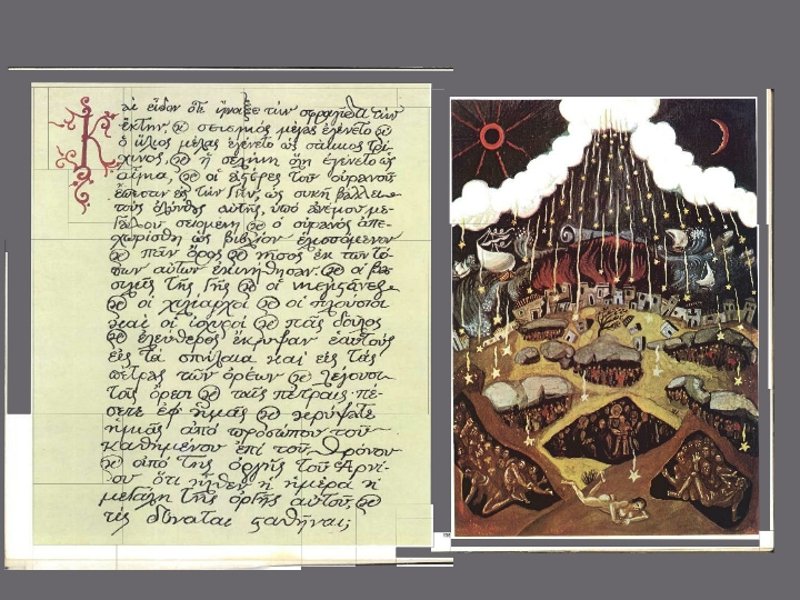 Καὶ εἶδον ὅτε ἤνοιξε τὴν σφραγῖδα τὴν
ἕκτην, ϗ σεισμός μέγας ἐγένετο ϗ
ὁ ἥλιος μέλας ἐγένετο ὡς σάκκος τρί-
χινος, ϗ ἡ σελήνη ὅλη ἐγένετο ὡς
αἷμα, ϗ οἱ ἀστέρες τοῦ οὐρανοῦ
ἔπεσαν εἰς τὴν γῆν, ὡς συκῆ βάλλει
τοὺς ὀλύνθους αὐτῆς, ὑπό ἀνέμου με-
γάλου σειομένη ϗ ὁ οὐρανός ἀπε-
χωρίσθη ὡς βιβλίον ἑλισσόμενον
ϗ πᾶν ὄρος ϗ νῆσος ἐκ τῶν τό-
πων αὐτῶν ἐκινήθησαν. ϗ οἱ βα-
σιλεῖς τῆς γῆς ϗ οἱ μεγιστᾶνες
ϗ οἱ χιλίαρχοι ϗ οἱ πλούσιοι
καὶ οἱ ἰσχυροί ϗ πᾶς δοῦλος
ϗ ἐλεύθερος ἔκρυψαν ἑαυτούς
εἰς τὰ σπήλαια καὶ εἰς τάς
πέτρας τῶν ὀρέων ϗ λέγουσι
τοῖς ὄρεσι ϗ ταῖς πέτραις· πέ-
σετε ἐφ' ἡμᾶς ϗ κρύψατε
ἡμᾶς ἀπό προσώπου τοῦ
καθημένου ἐπί τοῦ θρόνου
ϗ ἀπό τῆς ὀργῆς τοῦ Ἀρνί-
ου ὅτι ἦλθεν ἡ ἡμέρα ἡ
μεγάλη τῆς ὀργῆς αὐτοῦ, ϗ
τίς δύναται σταθῆναι;